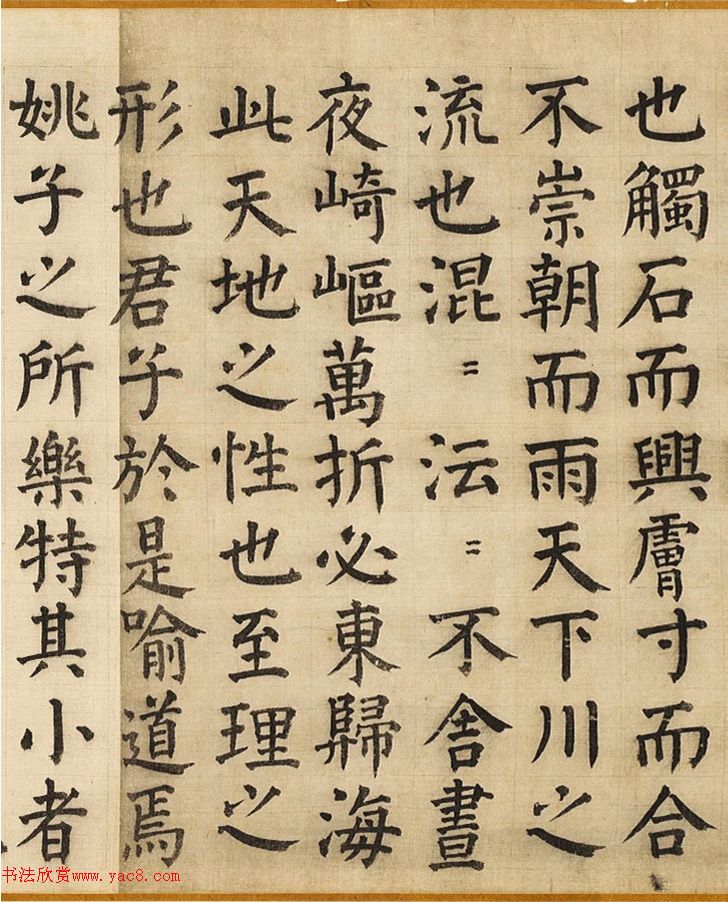 也觸石而興膚寸而合
不崇朝而雨天下川之
流也混〻沄〻不舍晝
夜崎嶇萬折必東歸海
此天地之性也至理之
形也君子於是喻道焉
姚子之所樂特其小者
书法欣赏www.yac8.com